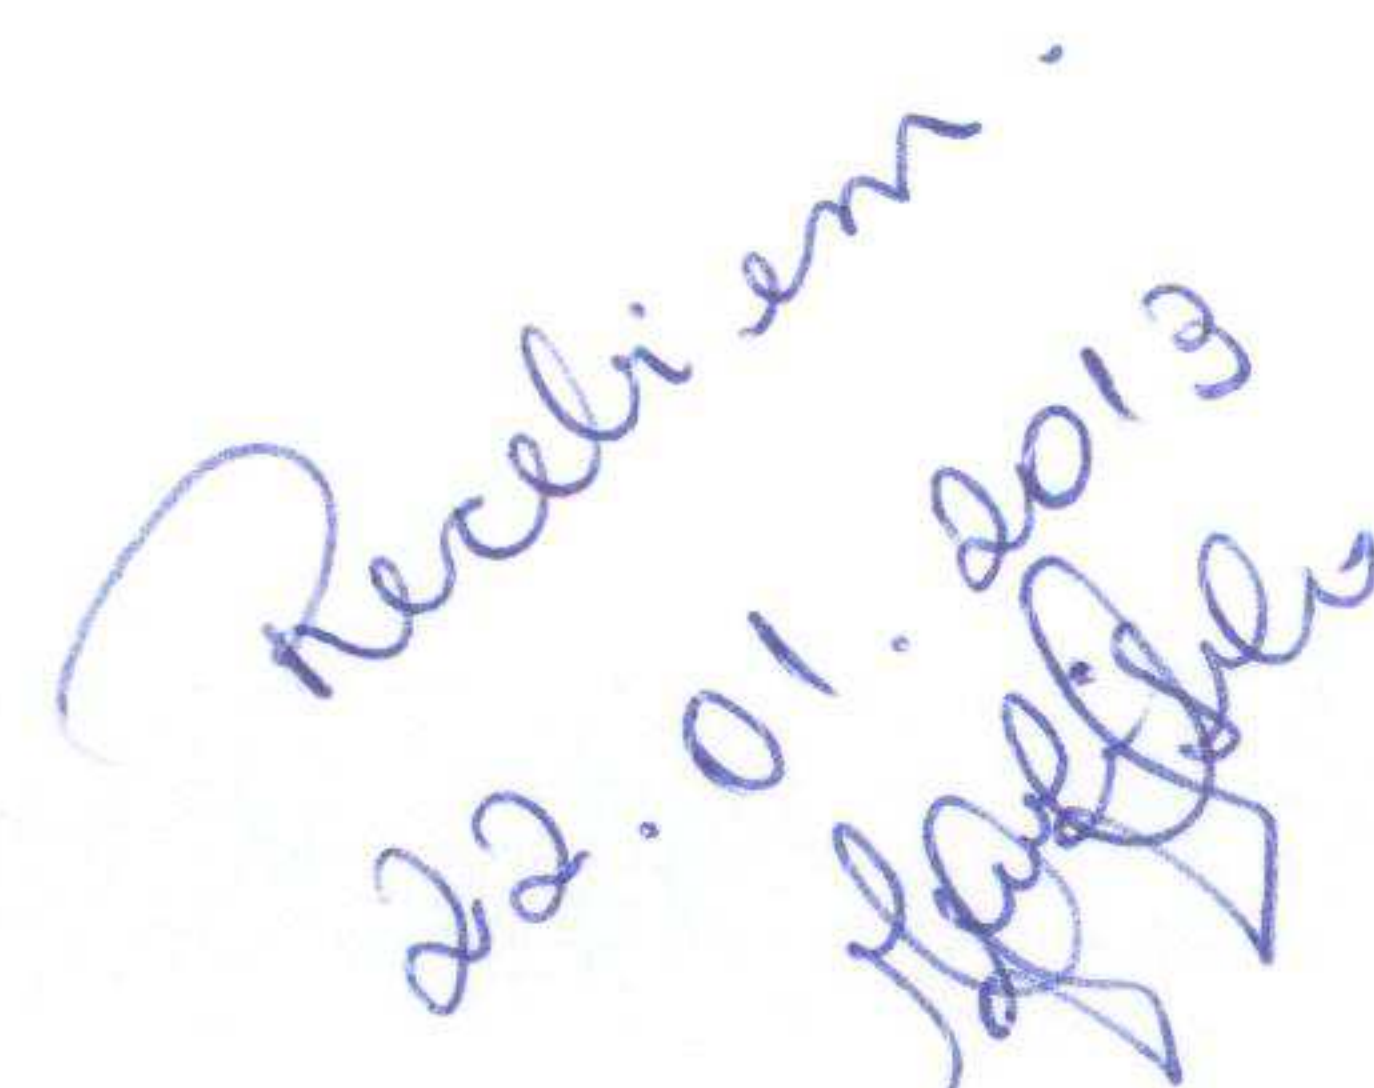 Recebi em.
22.01.2013